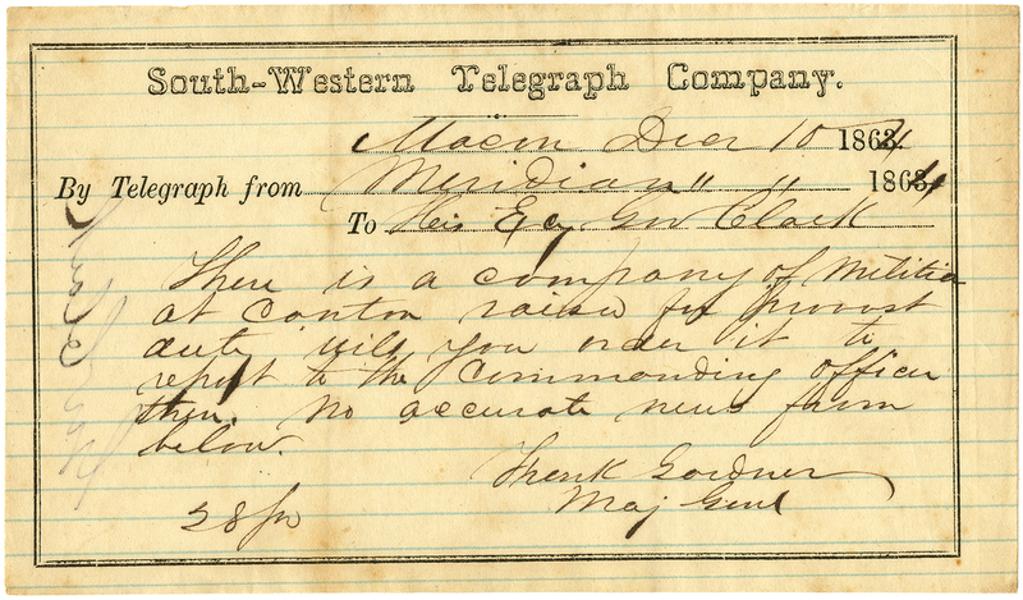 South-Western Telegraph Company.
Macon Decr 10 1864
By Telegraph from Meridian " " 1864
To His Exy Gov Clark
There is a company of Militia
at Canton raised for provost
duty will you order it to
report to the Commanding officer
there. No accurate news from
below.
Frank Gardner
Maj Genl
28